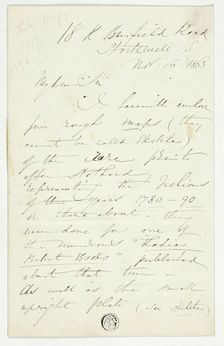 18 Road
Stockwell. S
Nov. 16 1863
My dear Sir
I herewith enclose
five rough maps (they
cannot be called sketches
of the rare prints
after Stothard
representing the fashions
of the years 1780 – 90
or thereabouts. they
were done for one of
the numerous "Ladies
Pocket Books" published
about that time.
As well as the small
upright plate (see sketch)